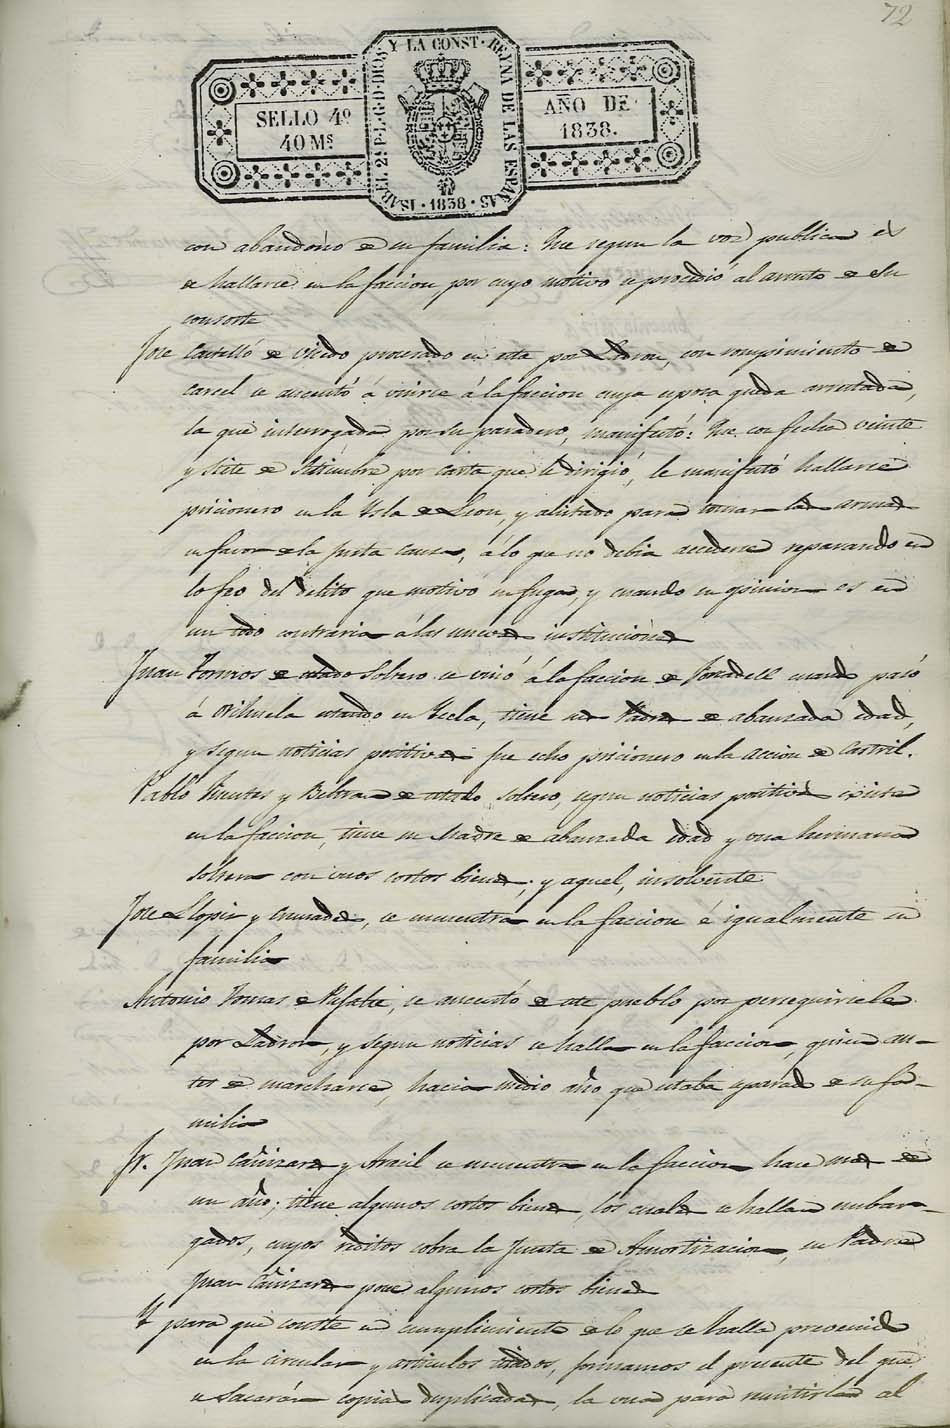 72
SELLO 4º
40 Ms
ISABEL 2ª P.L.G.D.DIOS Y LA CONST. REYNA DE LAS ESPAÑAS
1838
AÑO DE
1838.
con abandono de su familia: Que segun la voz publica es
de hallarse en la faccion, por cuyo motivo se procedió al arresto de su
consorte
Jose Castelló de Oviedo procesado en esta por Ladron, con rompimiento de
carcel se ausentó á unirse á la faccion cuya esposa queda arrestada,
la que interrogada por su paradero, manifestó: Que con fecha veinte
y siete de Setiembre por carta que le dirigió, le manifestó hallarse
prisionero en la Isla de Leon, y alistado para tomar las armas
en favor de la justa causa, á lo que no debia accederse reparando en
lo feo del delito que motivó su fuga, y cuando su opinion es en
un todo contraria á las nuevas instituciones
Juan Tormos de estado soltero se unió á la faccion de Forcadell cuando pasó
á Orihuela estando en Yecla, tiene sus Padres de abanzada edad,
y segun noticias positivas fue echo prisionero en la accion de Castril.
Pablo Fuentes y Beltran de estado soltero, segun noticias positivas existe
en la faccion, tiene su Madre de abanzada edad y una hermana
soltera con unos cortos bienes; y aquel, insolvente
Jose Llopis y se encuentra en la faccion é igualmente su
familia
Antonio Tomas de Rafael, se ausentó de este pueblo por perseguirsele
por Ladron, y segun noticias se halla en la faccion, quien an-
tes de marcharse, hacia medio año que estaba separado de su fa-
milia
Fr. Juan Cañizares y se encuentra en la faccion hace mas de
un año; tiene algunos cortos bienes, los cuales se hallan embar-
gados, cuyos reditos cobra la Junta de Amortizacion, su Padre
Juan Cañizares posee algunos cortos bienes
Y para que conste en cumplimiento de lo que se halla prevenido
en la circular y articulos citados, formamos el presente del que
se sacarán copias duplicadas, la una para remitirla al